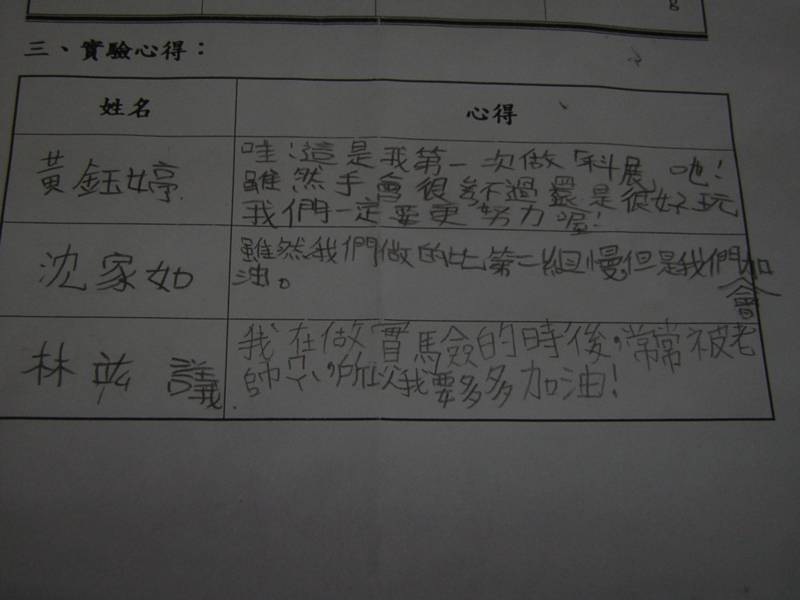 g
三、實驗心得：
姓名 心得
黃鈺婷
哇！這是我第一次做「科展」吔！
雖然手會很多不過還是很好玩
我們一定要更努力喔！
沈家如
雖然我們做的比第二組慢,但是我們會加
油。
林竑議
我在做實驗的時後，常常被老
師罵，所以我要多多加油！